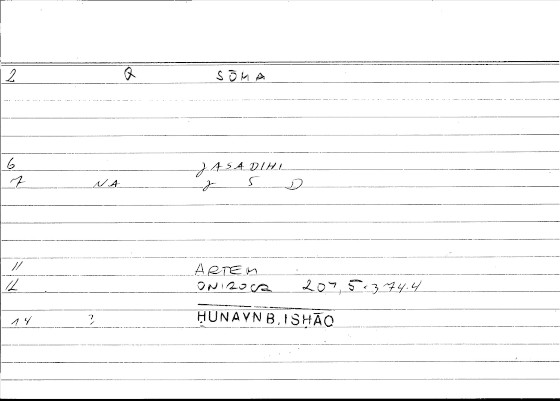 2 Q SŌMA
6 JASADIHI
7 NA J S D
11 ARTEM
12 ONIROCR 207,5-374.4
14 ? ḤUNAYN B. ISḤĀQ